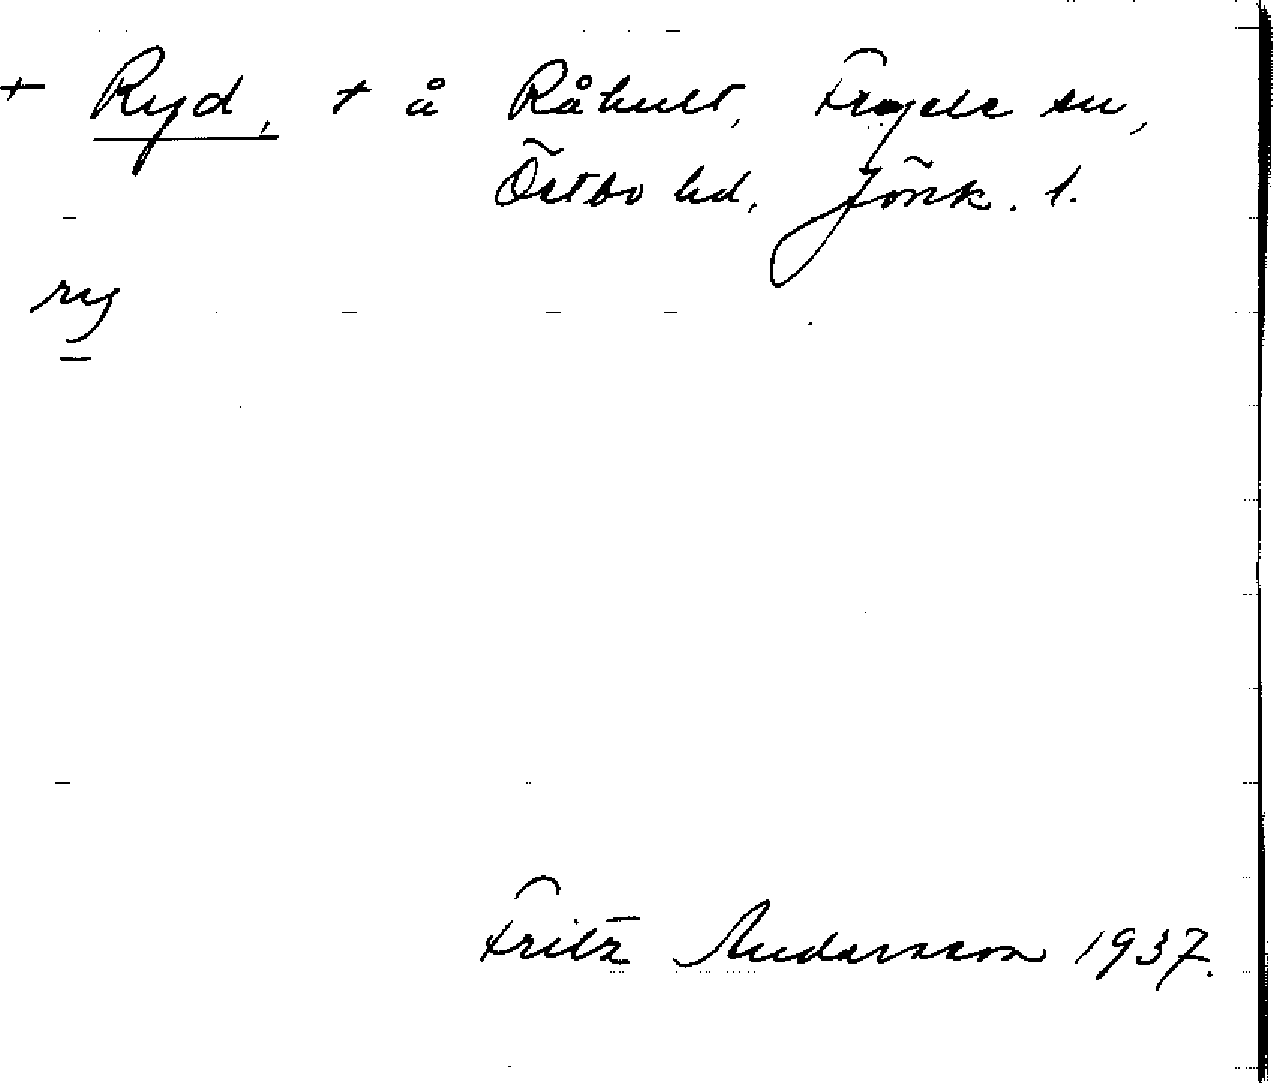 + Ryd, + å Råhult, Fryele sn,
Östbo hd, Jönk. l.
ry
Fritz Andersson 1937.